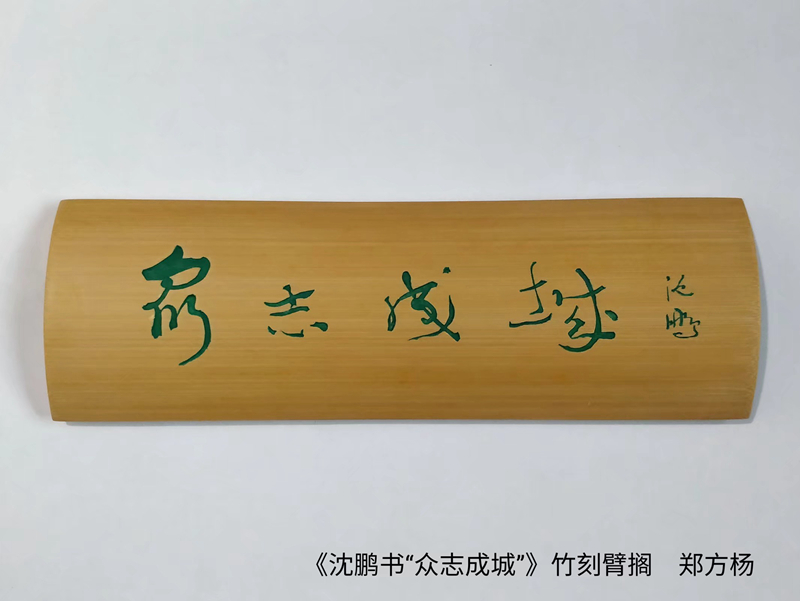 眾志成城
沈鹏
《沈鹏书“众志成城”》竹刻臂搁 郑方杨